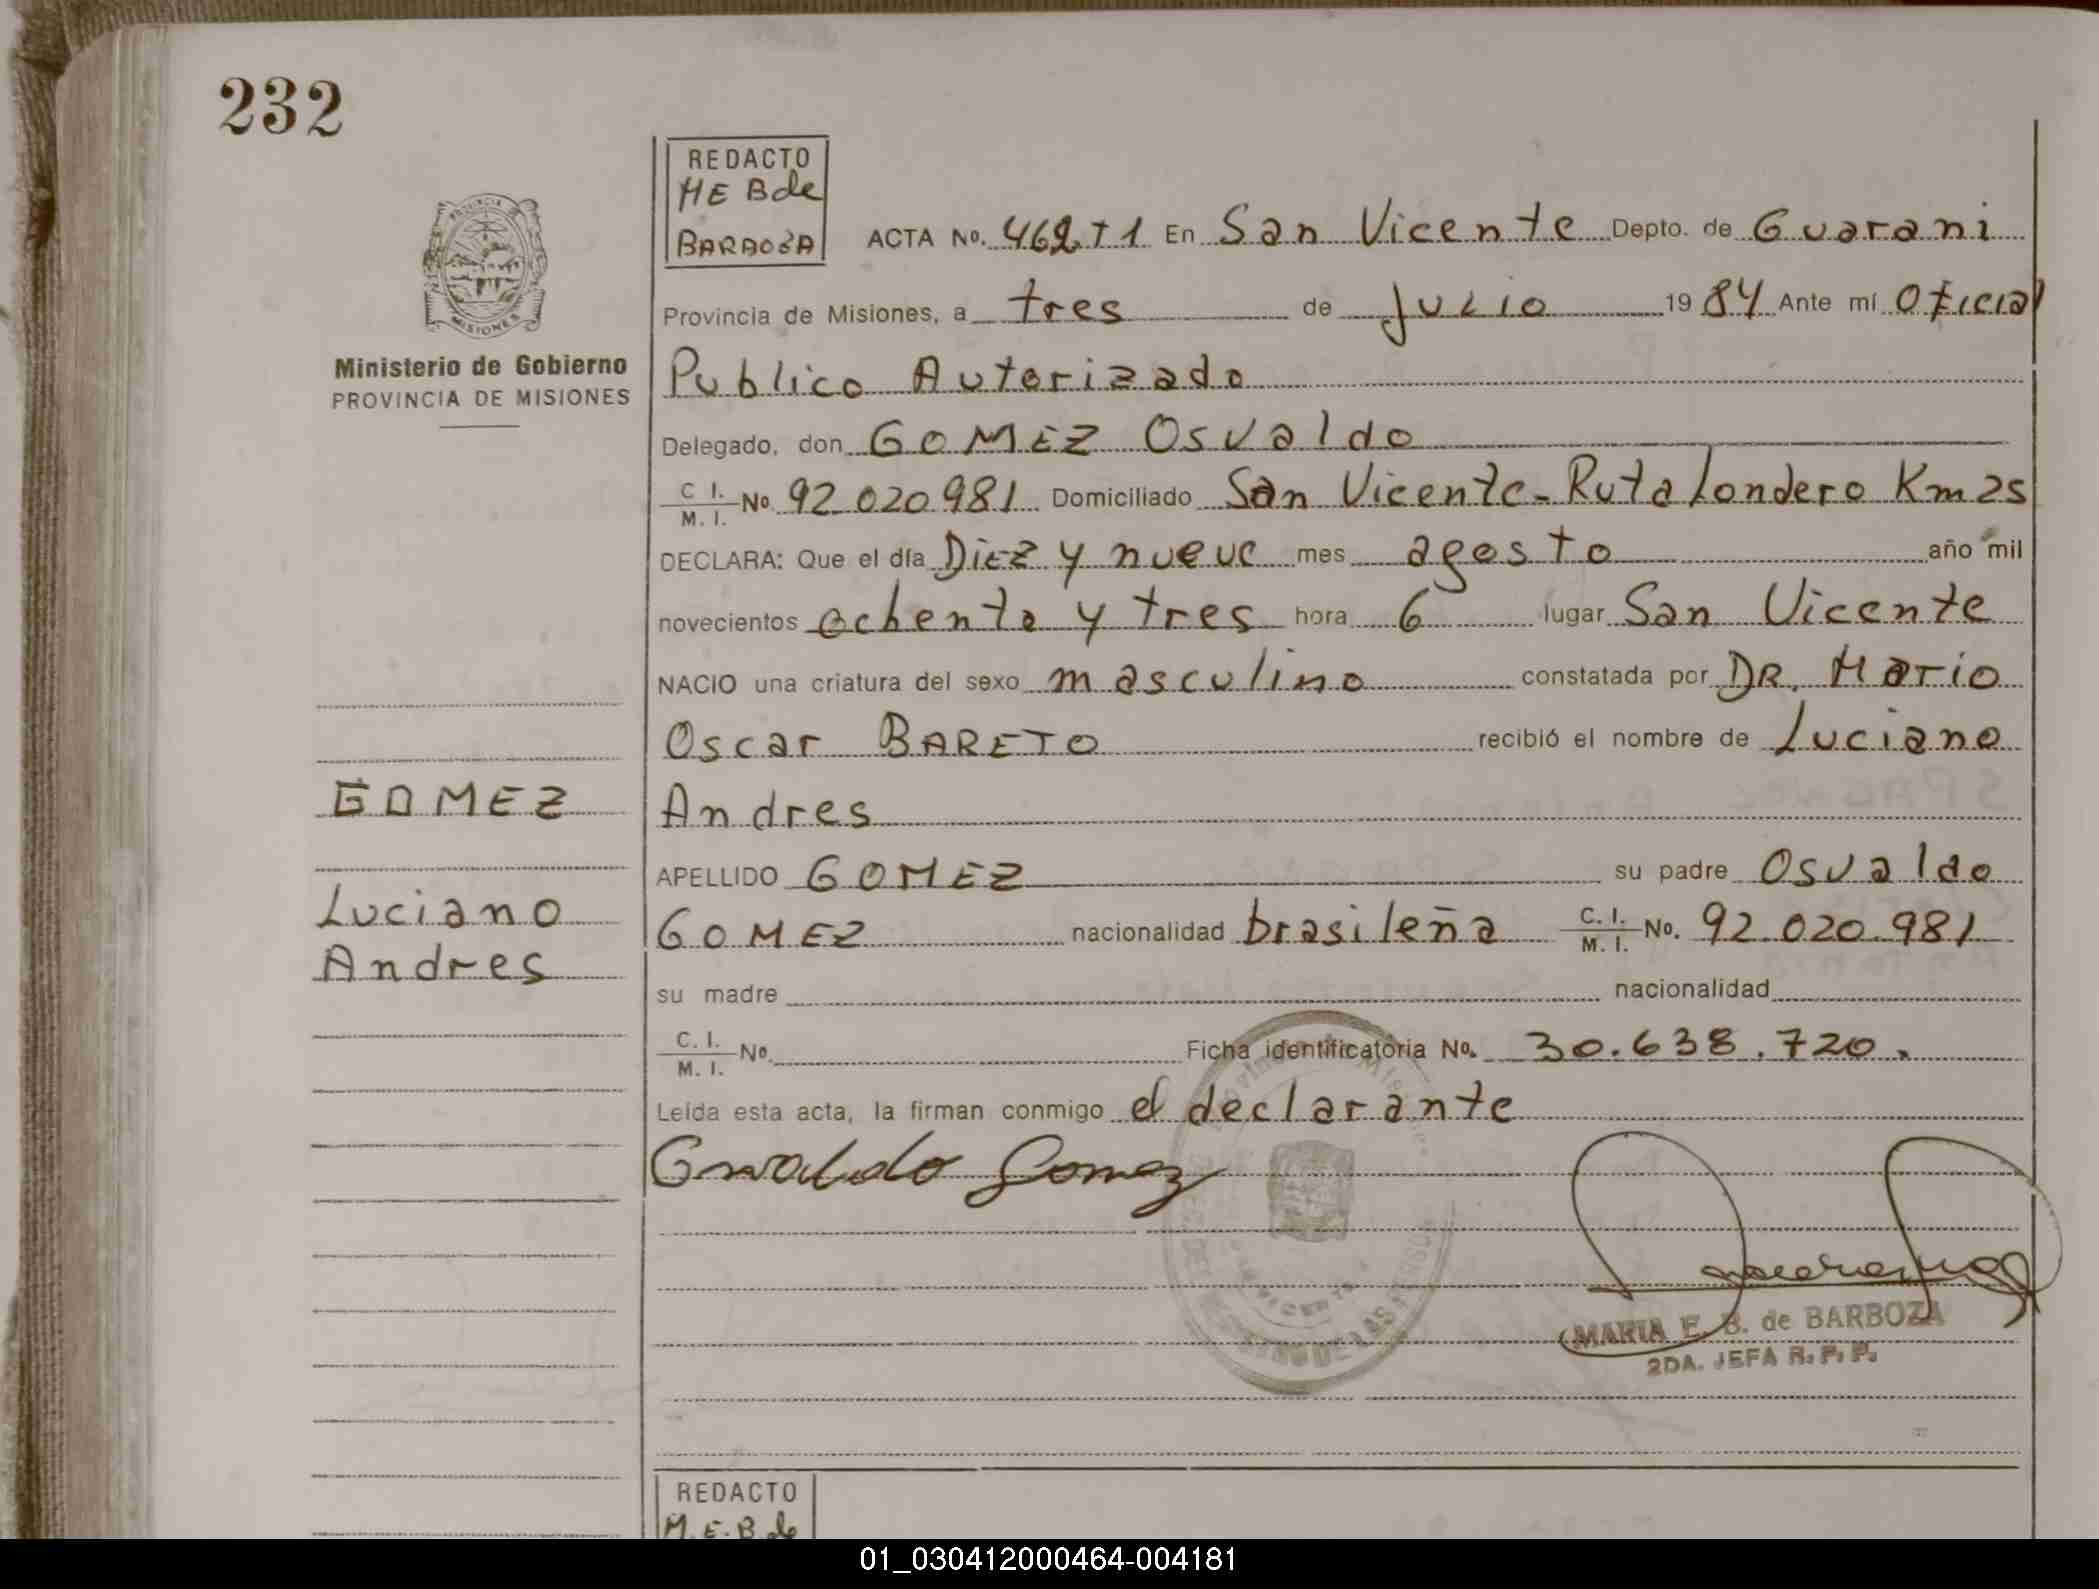 232
REDACTO
M E B de
BARBOZA
ACTA No. 462 T 1 En San Vicente Depto. de Guarani
Provincia de Misiones, a tres de Julio 1984 Ante mí Oficial
Ministerio de Gobierno
PROVINCIA DE MISIONES
Publico Autorizado
Delegado, don GOMEZ Osvaldo
C. I. / M. I. No 92 020 981 Domiciliado San Vicente - Ruta Londero Km 25
DECLARA: Que el día Diez y nueve mes agosto año mil
novecientos ochenta y tres hora 6 lugar San Vicente
NACIO una criatura del sexo masculino constatada por DR. Mario
Oscar BARETO recibió el nombre de Luciano
GOMEZ
Andres
APELLIDO GOMEZ su padre Osvaldo
Luciano
GOMEZ nacionalidad brasileña C. I. / M. I. No. 92 020.981
Andres
su madre nacionalidad
C. I. / M. I. No. Ficha identificatoria No. 30.638.720.
Leída esta acta, la firman conmigo el declarante
Osvaldo Gomez
MARIA E. B. de BARBOZA
2DA. JEFA R. P. P.
REDACTO
M. E. B de
01_030412000464-004181